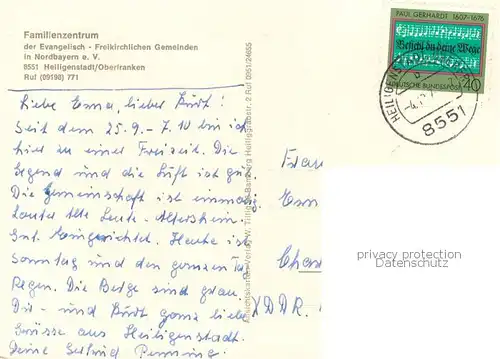 Familienzentrum
der Evangelisch - Freikirchlichen Gemeinden
in Nordbayern e. V.
8551 Heiligenstadt/Oberfranken
Ruf (09198) 771
Liebe Erna, lieber Kurt!
Seit dem 25.9. - 7.10 bin ich
hier zu einer Freizeit. Die
Gegend und die Luft ist gut.
Die Gemeinschaft ist einmalig
Lauter alte Leute - Altersheim.
Gut Eingerichtet. Heute ist
Sonntag und den ganzen Tag
Regen. Die Berge sind grau.
Dir - und Kurt ganz liebe
Grüsse aus Heiligenstadt.
Deine
PAUL GERHARDT 1607-1676
Befiehl du deine Wege
DEUTSCHE BUNDESPOST 40
HEILIGENSTADT
8551
Frau
Ern
Char
DDR.
privacy protection
Datenschutz